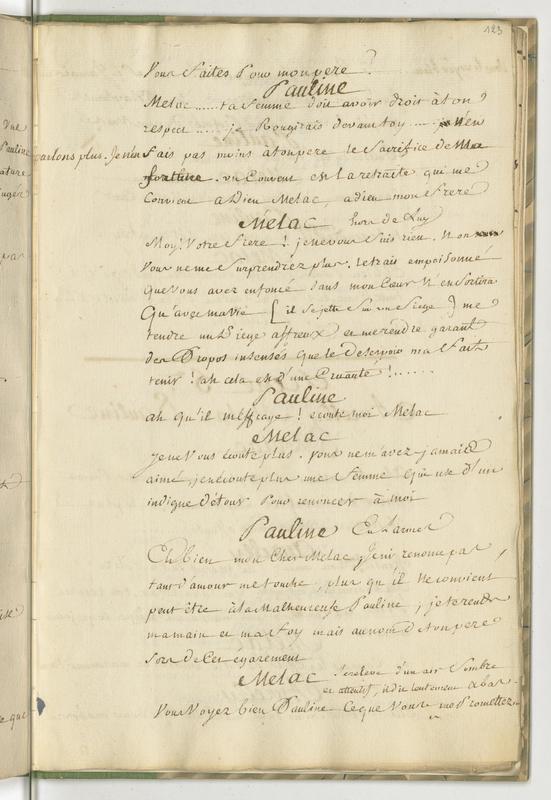 123
Vous faites pour mon pere ?
Pauline
Melac ..... ta femme doit avoir droit à ton
respect ..... je Rougirais devant toy ..... n'en
parlons plus. Je n'en fais pas moins a ton pere le Sacrifice de
fortune. un Couvent est la retraite qui me
Convient adieu Melac, adieu mon frere
Melac hors de Luy
Moy! Votre frere ! je ne vous suis rien. Non
Vous ne me Surprendréz plus. le trais empoisonné
que vous avez enfoncé dans mon Coeur n'en Sortira
Qu'avec ma vie [ il se jette sur un Siege ] me
tendre un Piege affreux et me rendre garant
des Propos insensés que le desespoir m'a fait
tenir ! ah cela est d'une Cruauté ! ......
Pauline
ah qu'il m'effraye ! ecoute moi Melac
Melac
je ne Vous écoute plus. vous ne m'avez jamais
aimé, je n'écoute plus une femme qui use d'un
indigne détour pour renoncer à moi
Pauline En Larmes
Eh bien mon Cher Melac je n'y renonce pas
tant d'amour me touche, plus qu'il Ne convient
peut être à la Malheureuse Pauline, je te rends
ma main et ma foy mais au nom de ton pere
Sors de Cet égarement
Melac Se releve d'un air Sombre
et attentif, il dit lentement a bas
Vous Voyez bien Pauline Ce que Vous me Promettez